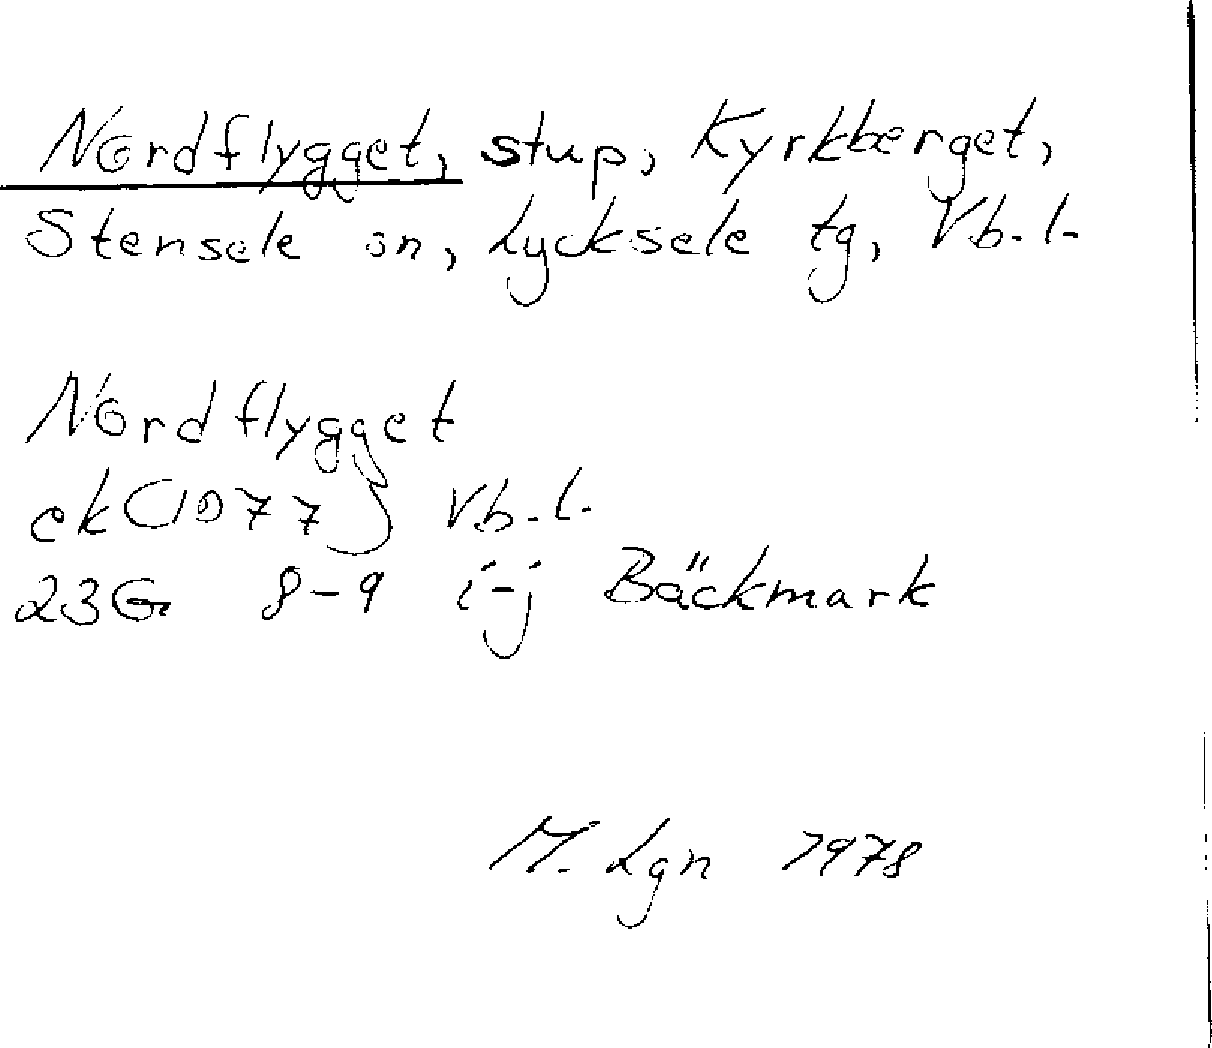 Nordflygget, stup, Kyrkberget,
Stensele sn, Lycksele tg, Vb.l.
Nordflygget
ek (1977) Vb.l.
23G 8-9 i-j Bäckmark
M. Lgn 1978